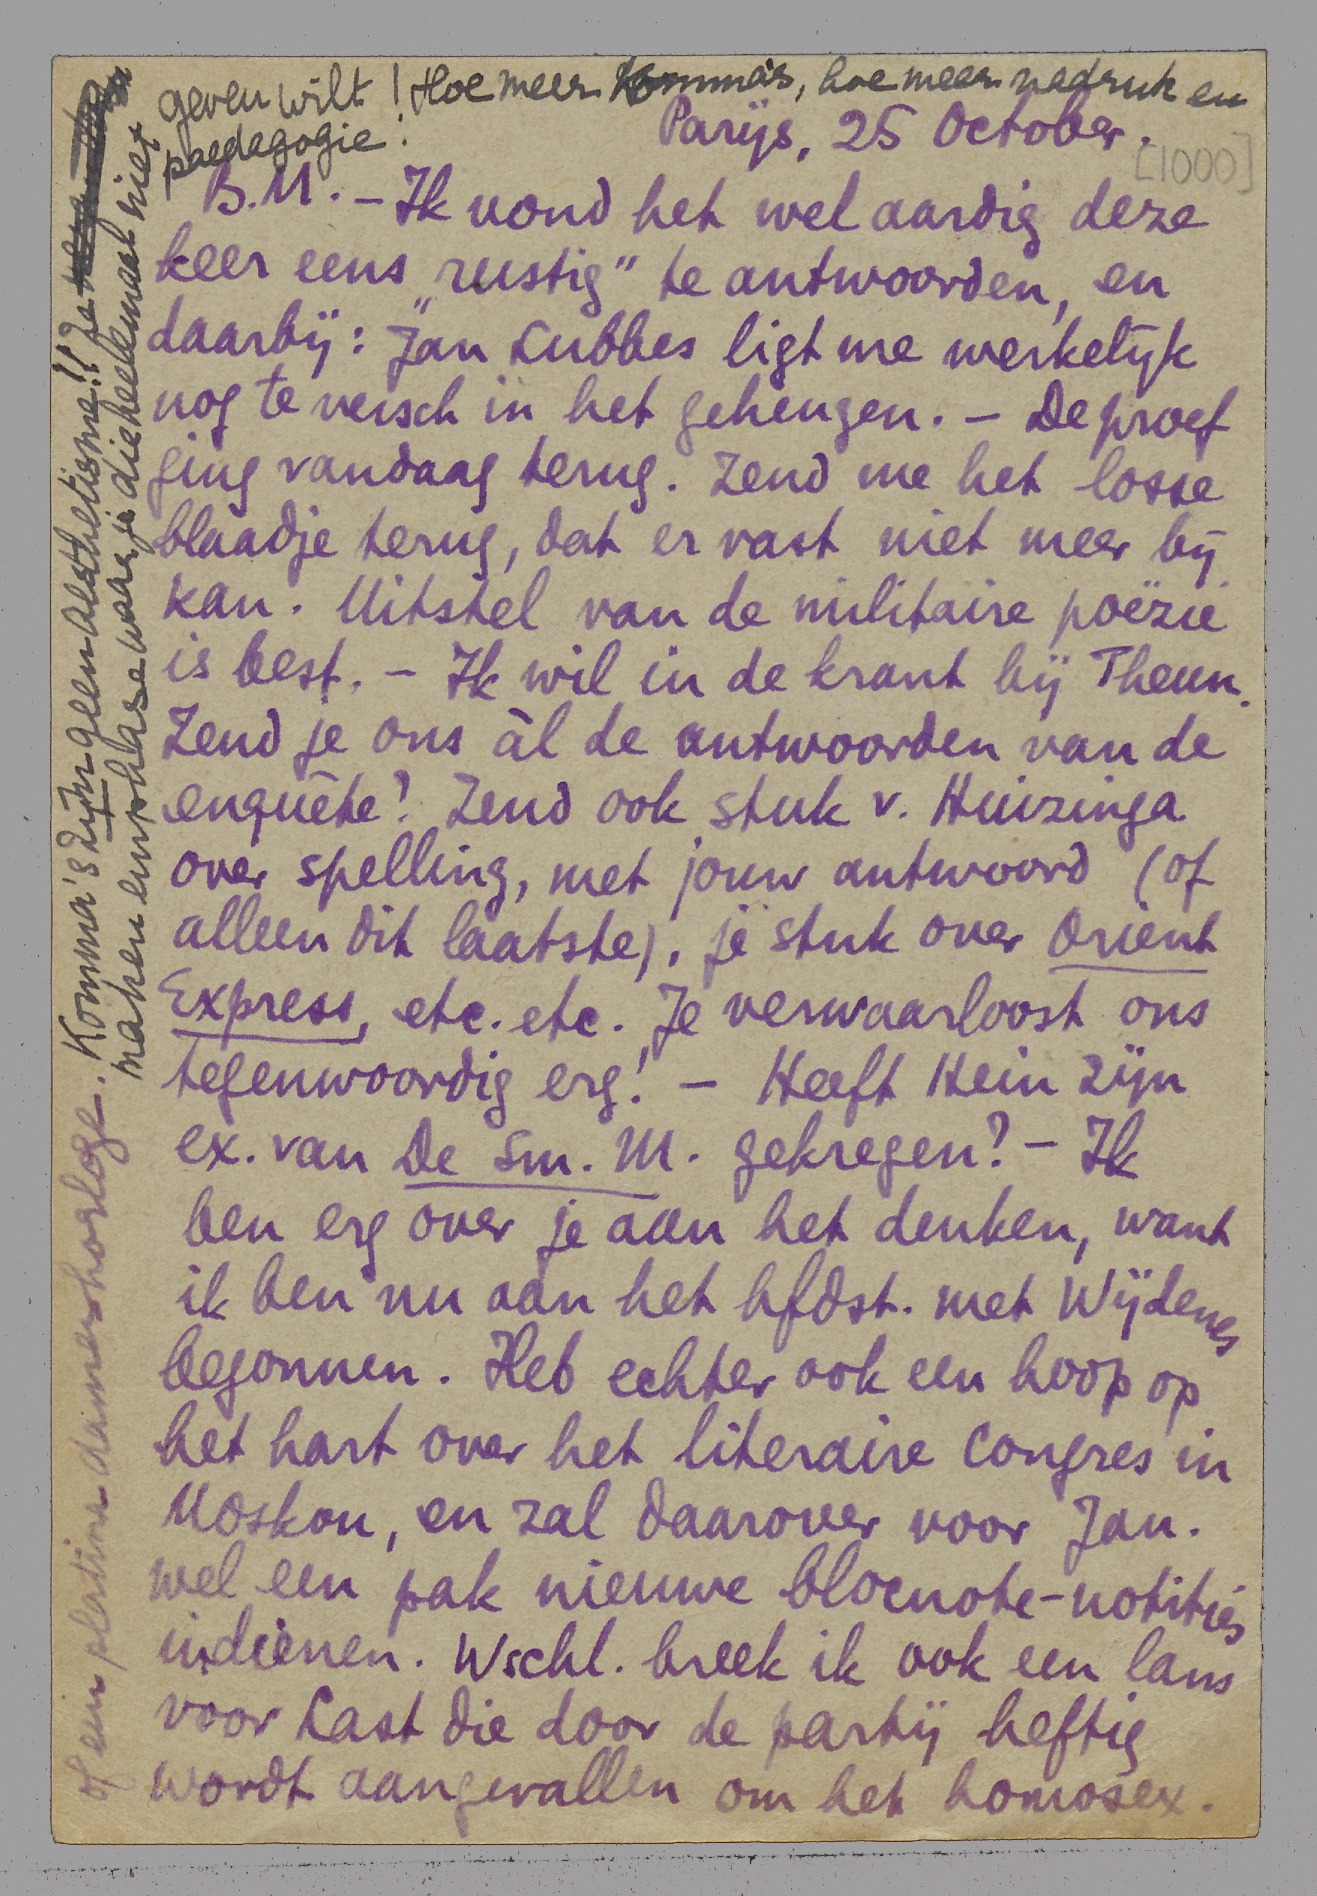 Parijs, 25 October.
[1000]
B.M. – Ik vond het wel aardig deze
keer eens „rustig” te antwoorden, en
daarbij: Jan Lubbes ligt me werkelijk
nog te versch in het geheugen. – De proef
ging vandaag terug. Zend me het losse
blaadje terug, dat er vast niet meer bij
kan. Uitstel van de militaire poëzie
is best. – Ik wil in de krant bij Theun.
Zend je ons àl de antwoorden van de
enquête? Zend ook stuk v. Huizinga
over spelling, met jouw antwoord (of
alleen dit laatste), je stuk over Orient
Express, etc. etc. Je verwaarloost ons
tegenwoordig erg! – Heeft Hein zijn
ex. van De Sm. M. gekregen? – Ik
ben erg over je aan het denken, want
ik ben nu aan het hfdst. met Wijdenes
begonnen. Heb echter ook een hoop op
het hart over het literaire congres in
Moskou, en zal daarover voor Jan.
wel een pak nieuwe blocnote-notities
indienen. Wschl. breek ik ook een lans
voor Last die door de partij heftig
wordt aangevallen om het homosex.
of een platina dameshorloge. Komma's zijn geen aesthetisme!! Je
maken en phrase waar je die heelemaal niet
geven wilt! Hoe meer komma's, hoe meer nadruk en
paedagogie!